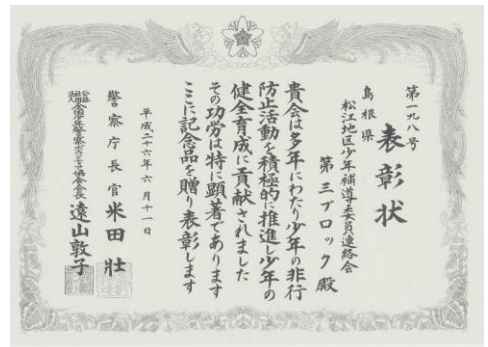 第一九八号
表彰状
島根県
松江地区少年補導委員連絡会
第三ブロック殿
貴会は多年にわたり少年の非行
防止活動を積極的に推進し少年の
健全育成に貢献されました
その功労は特に顕著であります
ここに記念品を贈り表彰します
平成二十六年六月十一日
警察庁長官 米田壮
公益社団法人全国少年警察ボランティア協会会長 遠山敦子